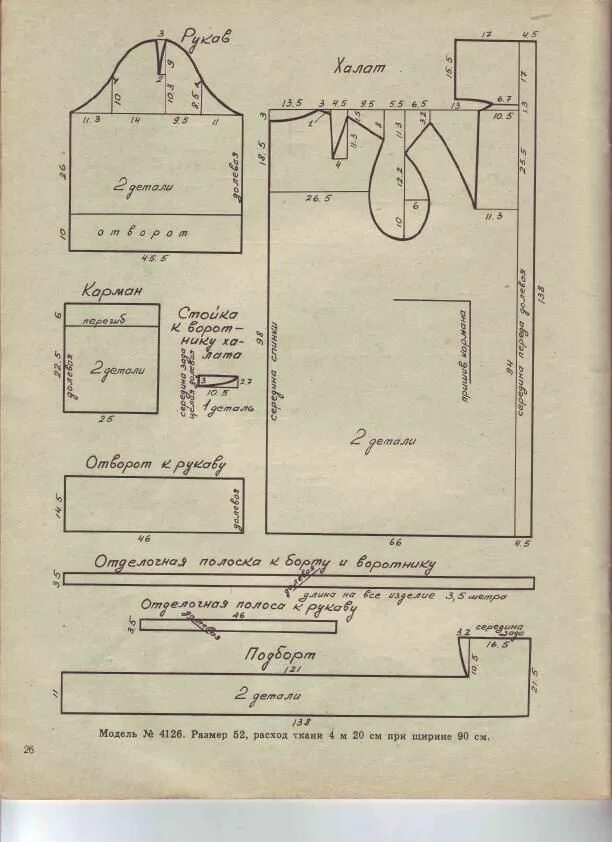 3
Рукав
9
2
10
10.3
8.5
11.3
14
9.5
11
26
2 детали
долевая
отворот
10
45.5
Халат
17
4.5
15.5
17
6.7
13
13
10.5
13.5
3
4.5
9.5
5.5
6.5
3
1
1.5
11.3
8
11.3
3.2
4
18.5
25.5
12.2
26.5
6
10
11.3
98
середина спинки
пришив кармана
94
середина переда долевая
138
2 детали
66
4.5
Карман
6
перегиб
22.5
долевая
2 детали
25
Стойка
к ворот-
нику ха-
лата
середина зада
целая долевая
3
2.7
10.5
1 деталь
Отворот к рукаву
14.5
долевая
46
Отделочная полоска к борту и воротнику
3.5
долевая
длина на все изделие 3,5 метра
Отделочная полоса к рукаву
46
3.5
долевая
Подборт
121
3.2
середина
зада
16.5
10.5
11
2 детали
21.5
138
Модель № 4126. Размер 52, расход ткани 4 м 20 см при щирине 90 см.
26